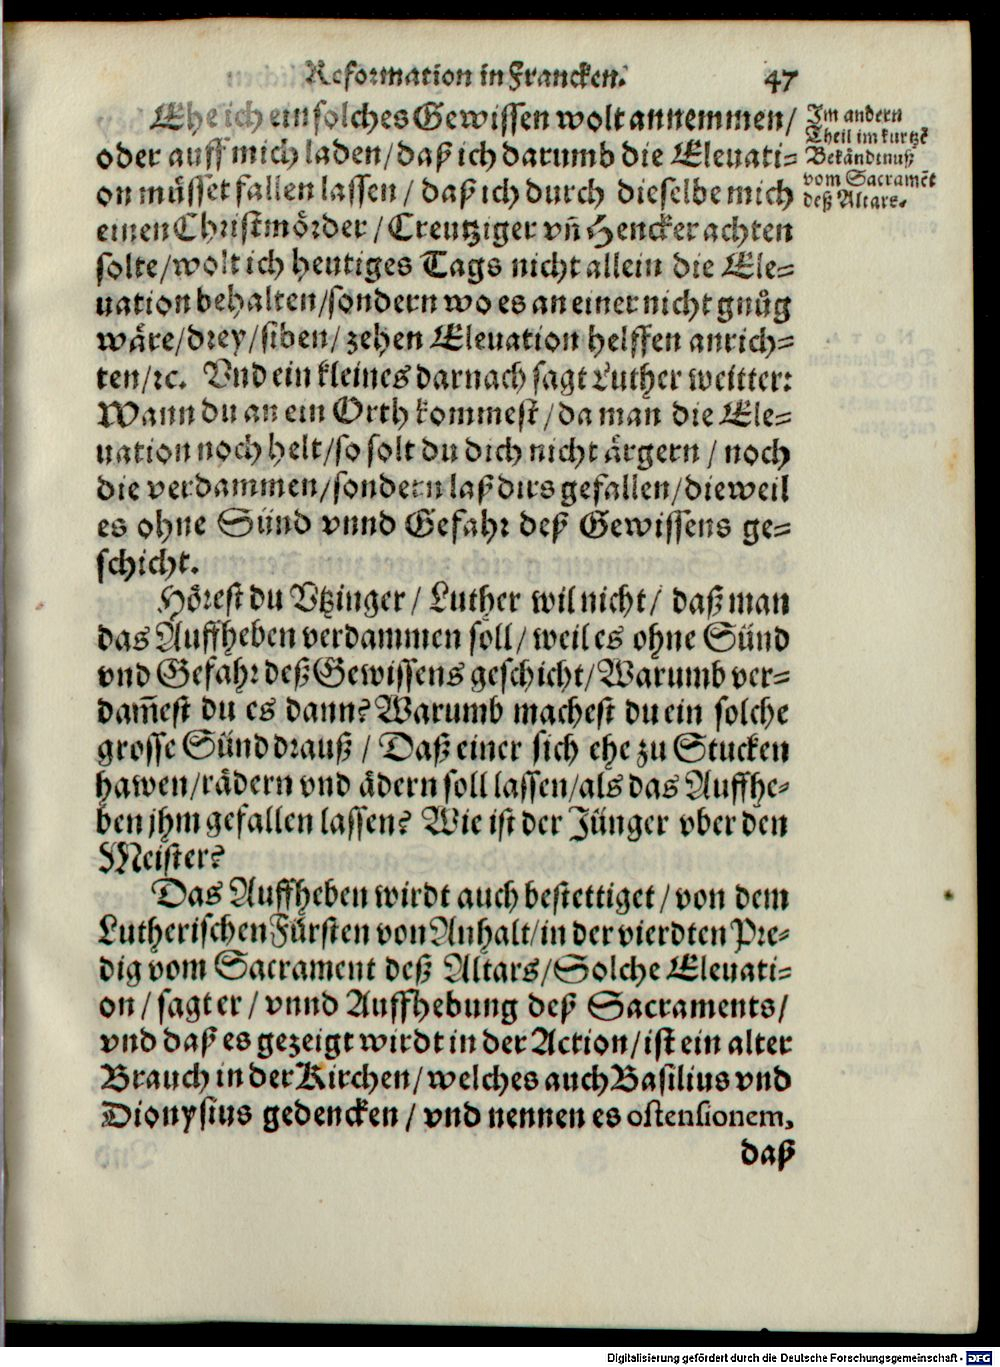 Reformation in Francken. 47
Ehe ich ein solches Gewissen wolt annemmen/
oder auff mich laden/daß ich darumb die Eleuati-
on müsset fallen lassen/ daß ich durch dieselbe mich
einen Christmörder/Creutziger vñ Hencker achten
solte/wolt ich heutiges Tags nicht allein die Ele-
uation behalten/sondern wo es an einer nicht gnůg
wäre/drey/siben/zehen Eleuation helffen anrich-
ten/ꝛc. Vnd ein kleines darnach sagt Luther weitter:
Wann du an ein Orth kommest/da man die Ele-
uation noch helt/so solt du dich nicht ärgern/noch
die verdammen/sondern laß dirs gefallen/dieweil
es ohne Sünd vnnd Gefahr deß Gewissens ge-
schicht.
Hörest du Vtzinger/ Luther wil nicht/ daß man
das Auffheben verdammen soll/weil es ohne Sünd
vnd Gefahr deß Gewissens geschicht/Warumb ver-
dam̄est du es dann? Warumb machest du ein solche
grosse Sünd drauß/ Daß einer sich ehe zu Stucken
hawen/rädern vnd ädern soll lassen/als das Auffhe-
ben jhm gefallen lassen? Wie ist der Jünger vber den
Meister?
Das Auffheben wirdt auch bestettiget/von dem
Lutherischen Fürsten von Anhalt/in der vierdten Pre-
dig vom Sacrament deß Altars/Solche Eleuati-
on/sagt er/ vnnd Auffhebung deß Sacraments/
vnd daß es gezeigt wirdt in der Action/ist ein alter
Brauch in der Kirchen/welches auch Basilius vnd
Dionysius gedencken/vnd nennen es ostensionem,
daß
Im andern
Theil im kurtzē
Bekändtnuß
vom Sacramēt
deß Altars.
Digitalisierung gefördert durch die Deutsche Forschungsgemeinschaft - DFG